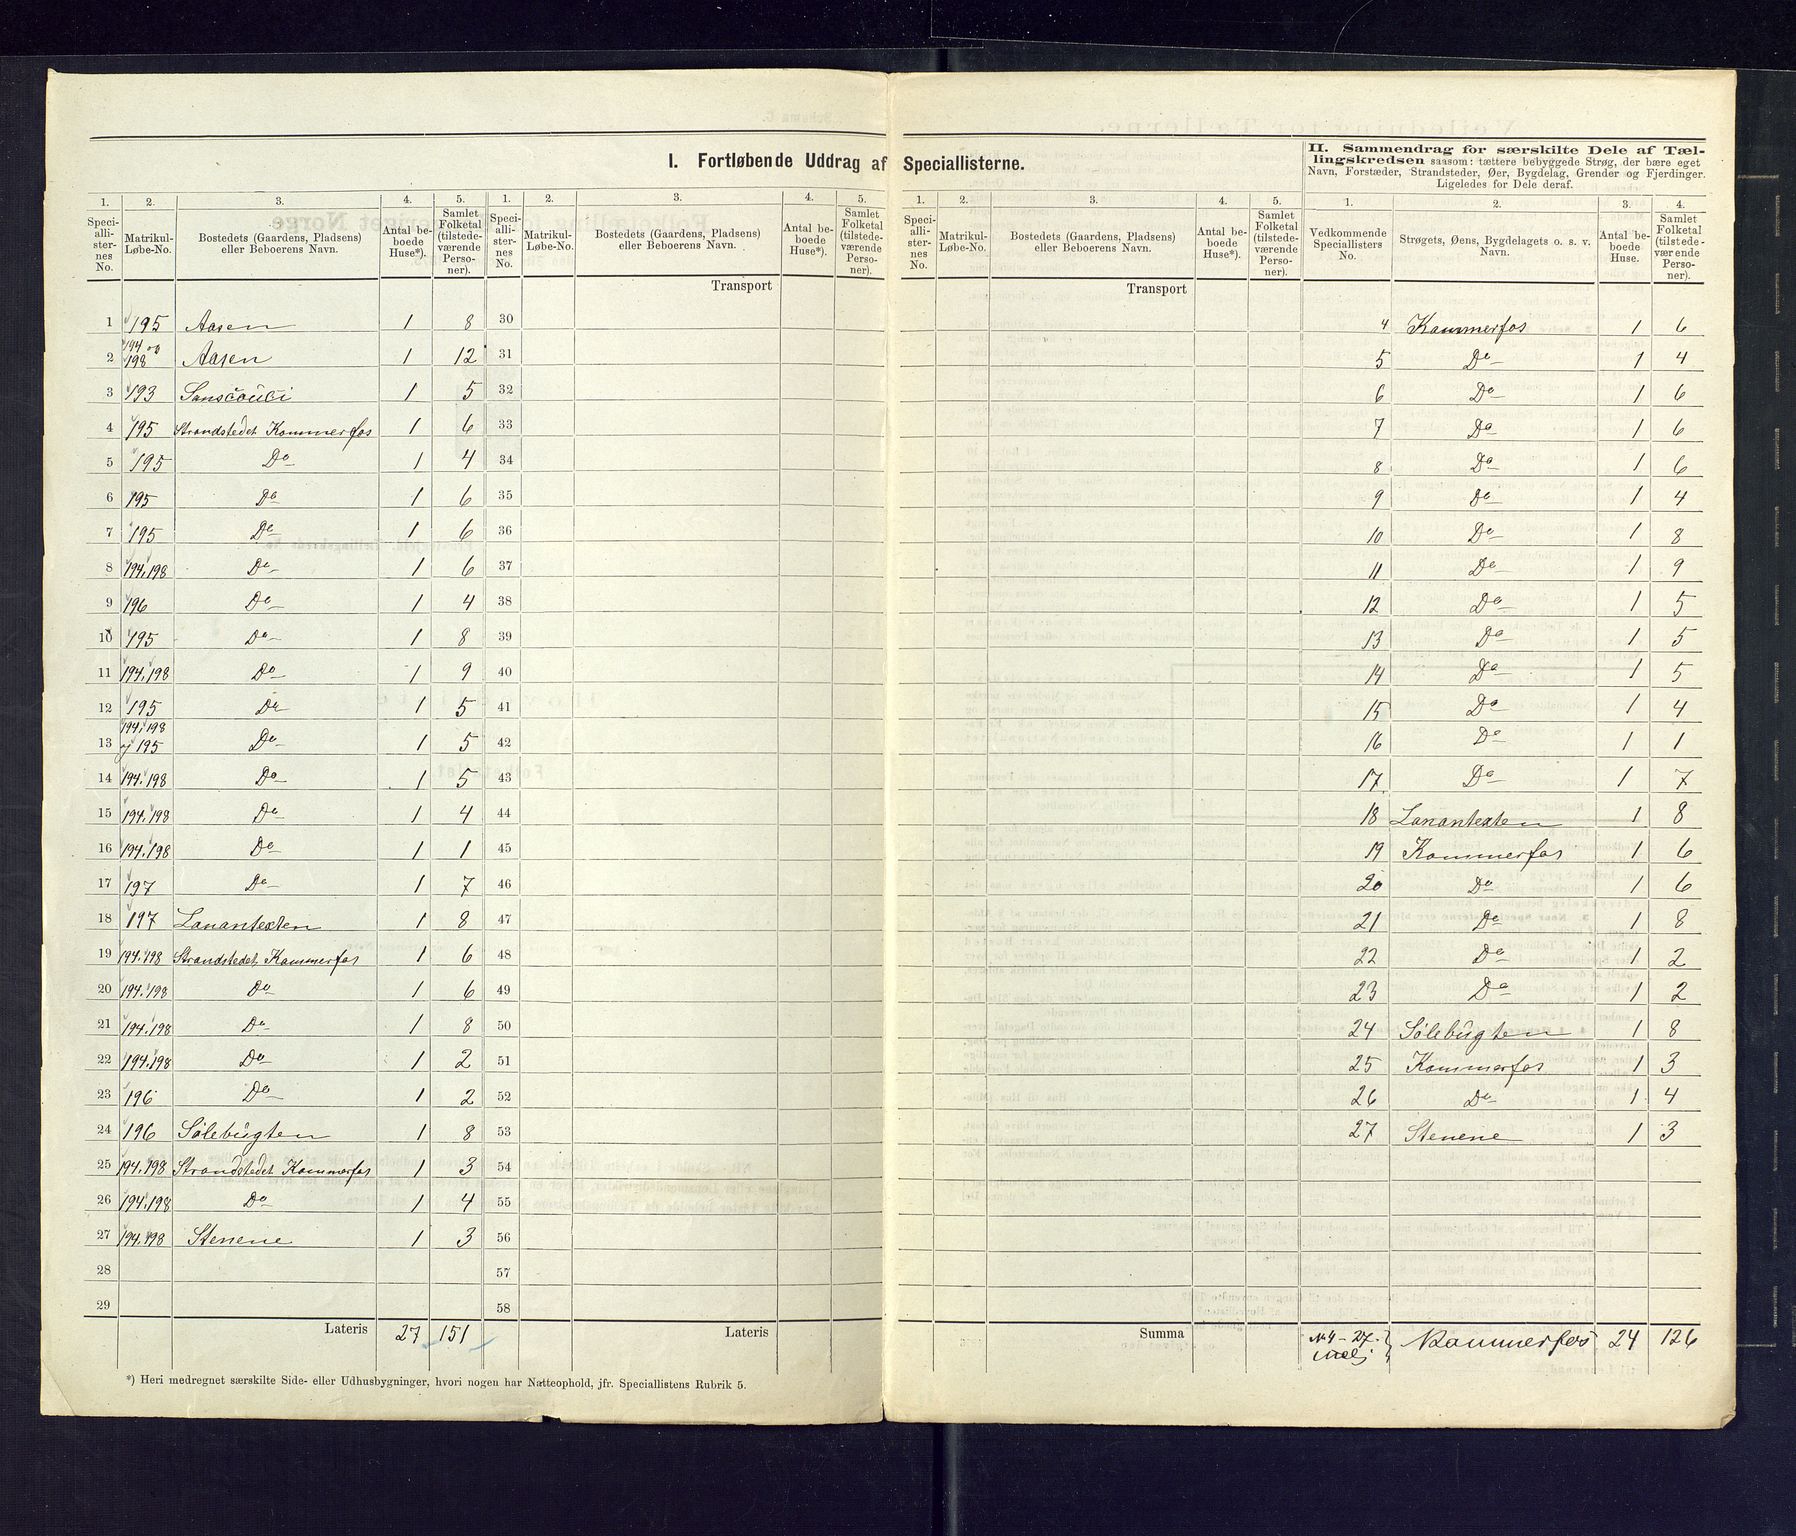 I. Fortløbende Uddrag af Speciallisterne.
II. Sammendrag for særskilte Dele af Tæl-
lingskredsen saasom: tættere bebyggede Strøg, der bære eget
Navn, Forstæder, Strandsteder, Øer, Bygdelag, Grender og Fjerdinger.
Ligeledes for Dele deraf.
1. 2. 3. 4. 5. 1. 2. 3. 4. 5. 1. 2. 3. 4. 5. 1. 2. 3. 4.
Speci-allister-nes No. Matrikul-Løbe-No. Bostedets (Gaardens, Pladsens) eller Beboerens Navn. Antal be-boede Huse*). Samlet Folketal (tilstede-værende Perso-ner).
Speci-allister-nes No. Matrikul-Løbe-No. Bostedets (Gaardens, Pladsens) eller Beboerens Navn. Antal be-boede Huse*). Samlet Folketal (tilstede-værende Perso-ner).
Speci-allister-nes No. Matrikul-Løbe-No. Bostedets (Gaardens, Pladsens) eller Beboerens Navn. Antal be-boede Huse*). Samlet Folketal (tilstede-værende Perso-ner).
Vedkommende Speciallisters No. Strøgets, Øens, Bygdelagets o. s. v. Navn. Antal be-boede Huse. Samlet Folketal (tilstede-værende Perso-ner).
Transport Transport
1 195 Aasen 1 8 30
2 194 og 198 Aasen 1 12 31
3 193 Sanscouci 1 5 32
4 195 Strandstedet Kammerfos 1 6 33
5 195 Do 1 4 34
6 195 Do 1 6 35
7 195 Do 1 6 36
8 194, 198 Do 1 6 37
9 196 Do 1 4 38
10 195 Do 1 8 39
11 194, 198 Do 1 9 40
12 195 Do 1 5 41
13 194, 198 og 195 Do 1 5 42
14 194, 198 Do 1 5 43
15 194, 198 Do 1 4 44
16 194, 198 Do 1 1 45
17 197 Do 1 7 46
18 197 Lanantexten 1 8 47
19 194, 198 Strandstedet Kammerfos 1 6 48
20 194, 198 Do 1 6 49
21 194, 198 Do 1 8 50
22 194, 198 Do 1 2 51
23 196 Do 1 2 52
24 196 Sølebugten 1 8 53
25 194, 198 Strandstedet Kammerfos 1 3 54
26 194, 198 Do 1 4 55
27 194, 198 Stenene 1 3 56
28 57
29 58
Lateris 27 151 Lateris
*) Heri medregnet særskilte Side- eller Udhusbygninger, hvori nogen har Natteophold, jfr. Speciallistens Rubrik 5.
4 Kammerfos 1 6
5 Do 1 4
6 Do 1 6
7 Do 1 6
8 Do 1 6
9 Do 1 4
10 Do 1 8
11 Do 1 9
12 Do 1 5
13 Do 1 5
14 Do 1 5
15 Do 1 4
16 Do 1 1
17 Do 1 7
18 Lanantexten 1 8
19 Kammerfos 1 6
20 Do 1 6
21 Do 1 8
22 Do 1 2
23 Do 1 2
24 Sølebugten 1 8
25 Kammerfos 1 3
26 Do 1 4
27 Stenene 1 3
Summa N. 4 - 27. Kammerfos 24 126